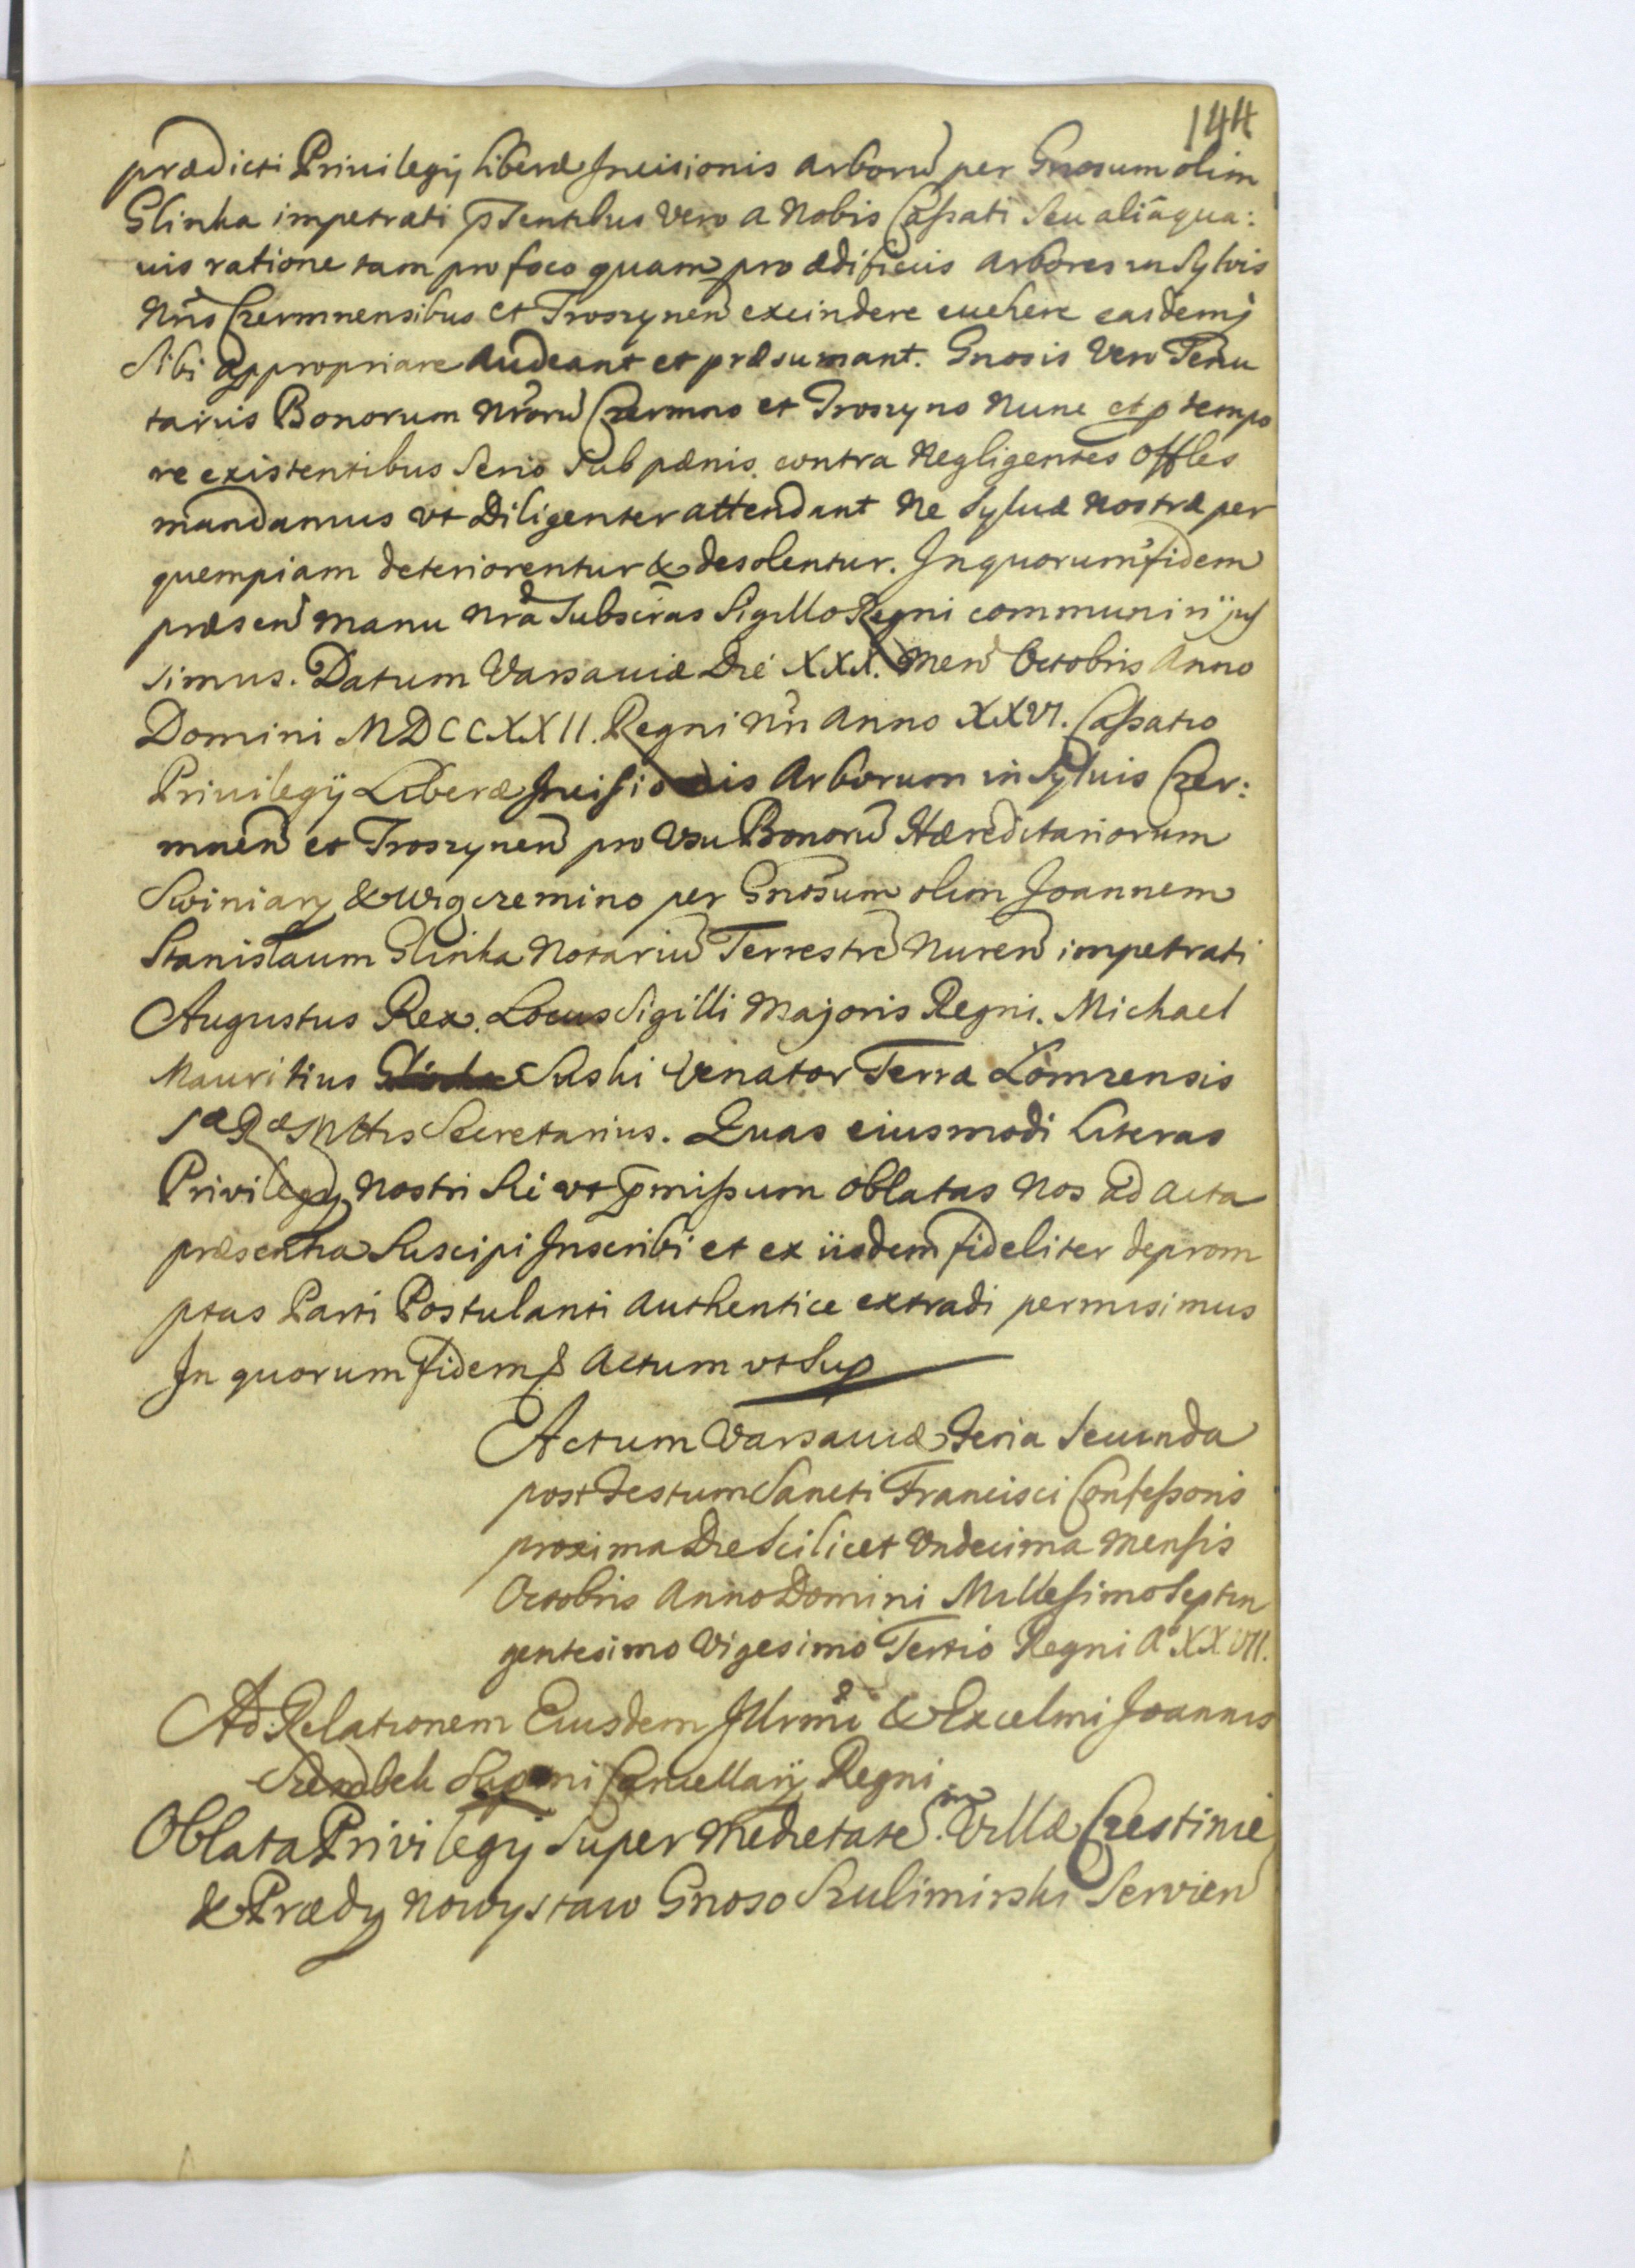 144
prædicti Privilegij liberæ Incisionis arborũ per Gnosum olim
Glinka impetrati p̃sentibus vero a Nobis Cassati seu aliâ qua:
uis ratione tam pro foco quam pro ædificiis arbores in Sylvis
Nr̃is Czermnensibus et Troszynen̄ excindere euehere easdemq̀
Sibi appropriare audeant et præsumant. Gnosis vero Tenu
tariis Bonorum Nr̃orũ Czermno et Troszyno Nunc et p̃ tempo
re existentibus Serio sub pænis contra Negligentes Offles
mandamus vt Diligenter attendant Ne Syluæ Nostræ per
quempiam deteriorentur & desolentur. In quorum fidem
præsen̄ manu Nrã Subscras Sigillo Regni communiri jus
simus. Datum Varsauiæ Die XXX. Men̄ Octobris Anno
Domini MDCCXXII. Regni Nr̃i Anno XXVI. Cassatio
Privilegij Liberæ Incisionis Arborum in Syluis Czer:
mnen̄ et Troszynen̄ pro Vsu Bonorũ Hæreditariorum
Swiniary & Wigczemino per Gnosum olim Joannem
Stanislaum Glinka Notariũ Terrestrẽ Nuren̄ impetrati
Augustus Rex. Locus Sigilli Majoris Regni. Michael
Mauritius Suski Venator Terræ Łomzensis
Sæ Ræ Mttis Secretarius. Quas eiusmodi Literas
Privilegij Nostri Sic vt p̃missum oblatas Nos ad acta
præsentia Suscipi Inscribi et ex iisdem fideliter deprom
ptas Parti Postulanti authentice extradi permisimus
In quorum fidem & Actum vt Sup
Actum Varsauiæ Feria Secunda
post Festum Sancti Francisci Confessoris
proxima Die Scilicet Vndecima Mensis
Octobris Anno Domini Millesimo Septin
gentesimo Vigesimo Tertio Regni Aº XXVII.
Ad Relationem Eiusdem Illrmi & Excelmi Joannis
Szembek Supmi Cancellarij Regni
Oblata Privilegij Super Medietatem Villæ Czestinie
& Prædij Nowystaw Gnoso Szulimirski Servien̄